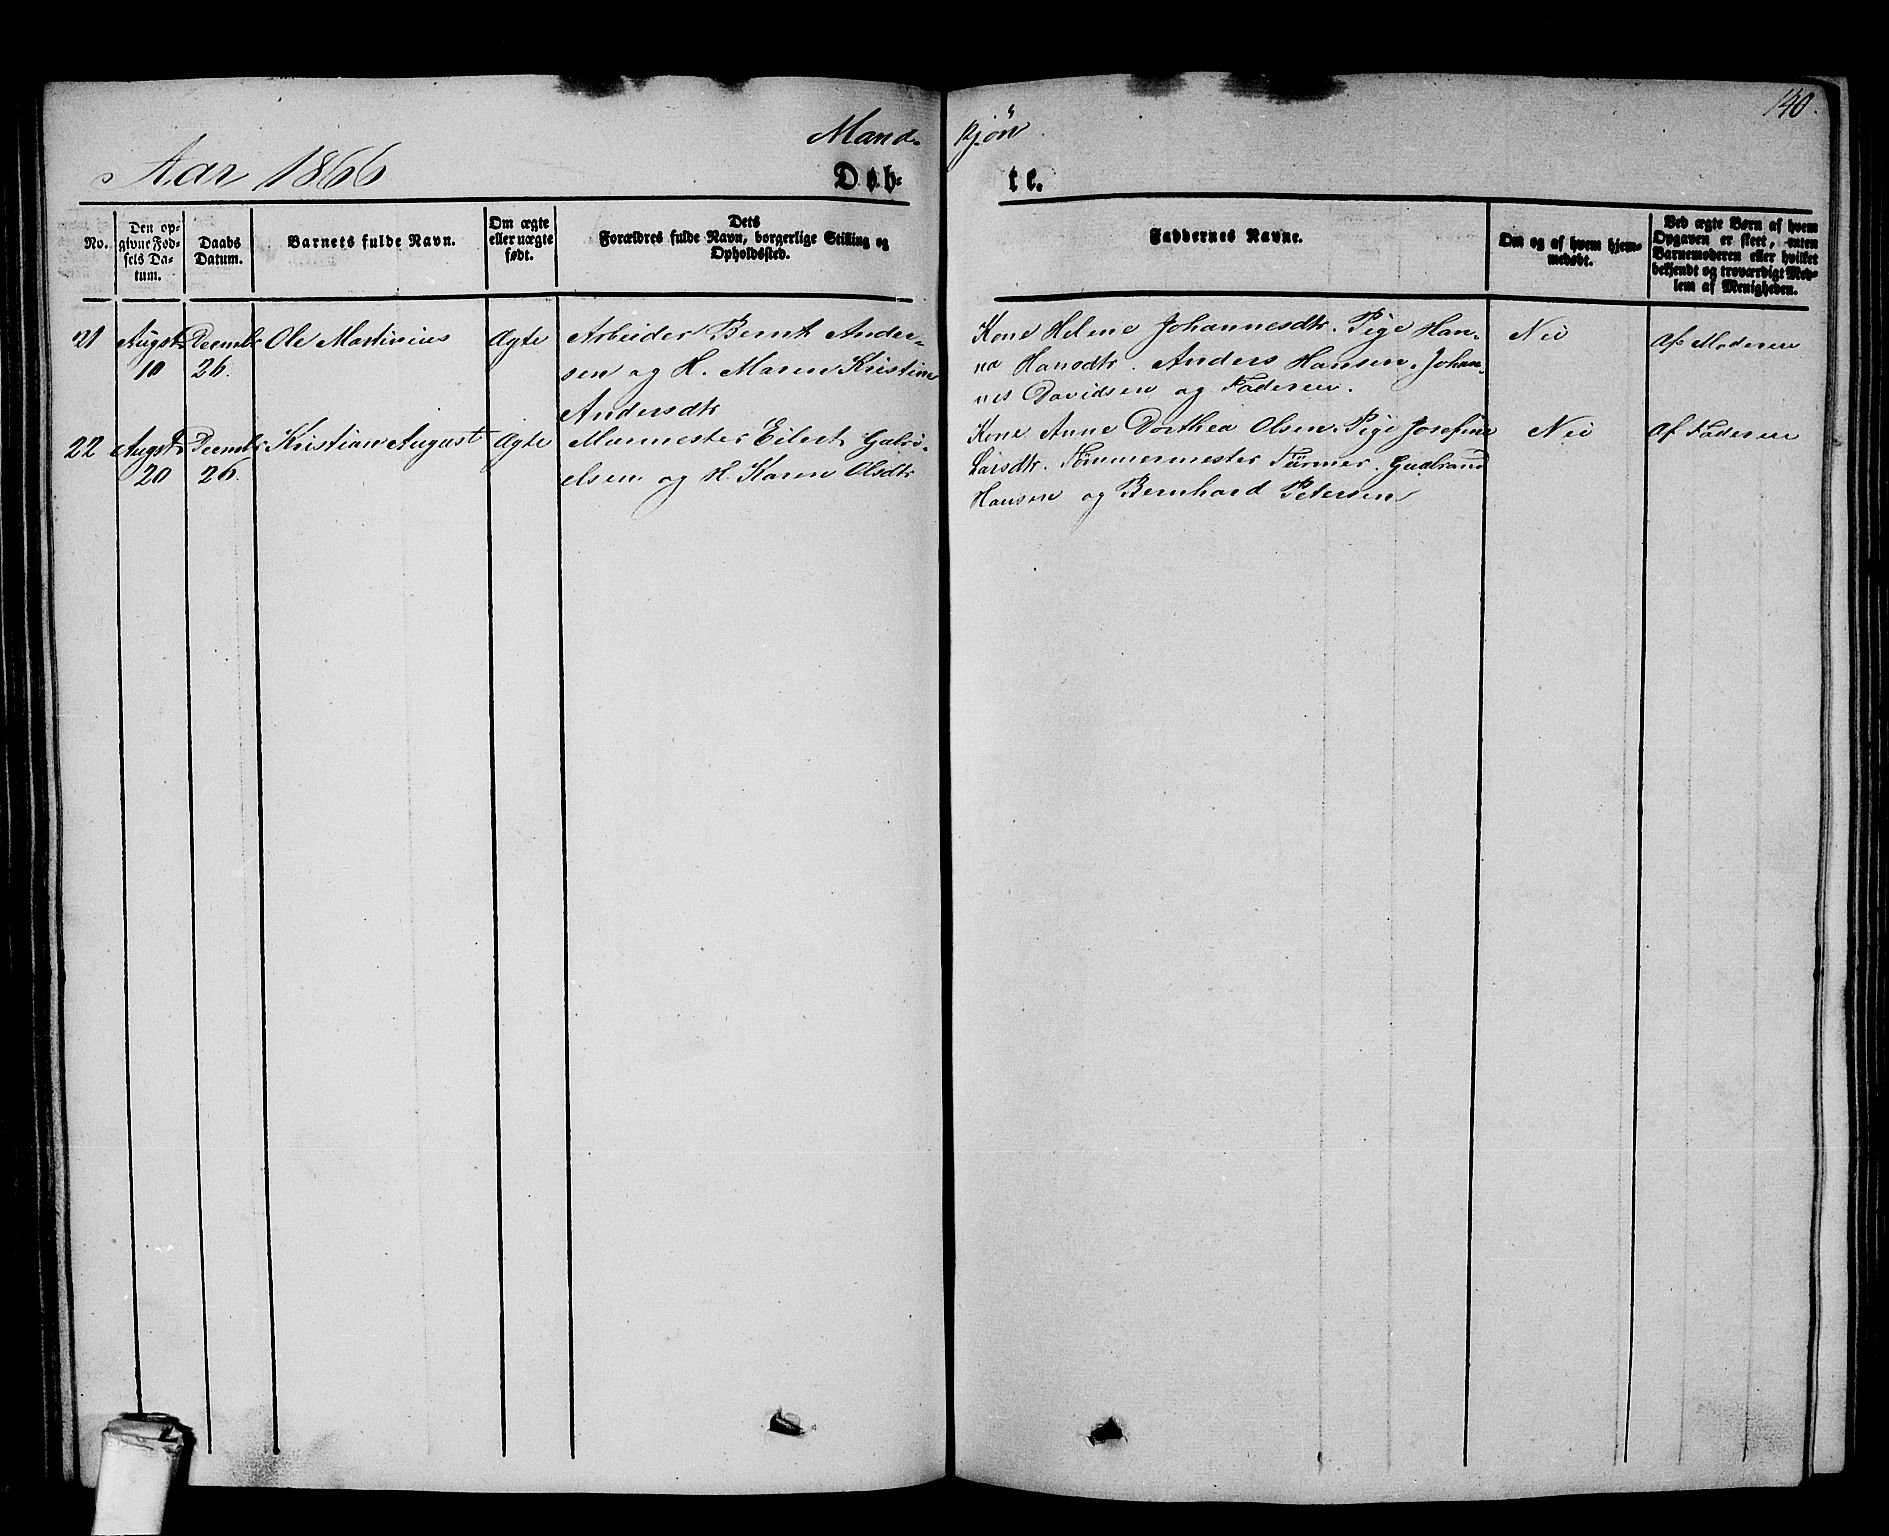 140.
Mandkjøn.
Aar 1866
Døbte.
No.
Den opgivne Fødsels Datum.
Daabs Datum.
Barnets fulde Navn.
Om ægte eller uægte født.
Dets Forældres fulde Navn, borgerlige Stilling og Opholdssted.
Faddernes Navne.
Om og af hvem hjemmedøbt.
Ved ægte Børn af hvem Opgaven er skeet, enten Barnemoderen eller hvilket bekjendt og troværdigt Medlem af Menigheden.
21 Augst Decmbr Ole Martinius Ægte Arbeider Bernt Ander- Kone Helene Johannesdtr. Pige Han- Nei Af Moderen
10 26. sen og H. Maren Kristine na Hansdtr. Anders Hansen. Johan-
Andersdtr nes Davidsen og Faderen.
22 Augst Decmbr Kristian August Ægte Murmester Eilert Gabri- Kone Anne Dorthea Olsen. Pige Josefine Nei Af Faderen
20 26. elsen og H. Karen Olsdtr Larsdtr. Tømmermester Türmer. Gudbrand
Hansen og Bernhard Petersen